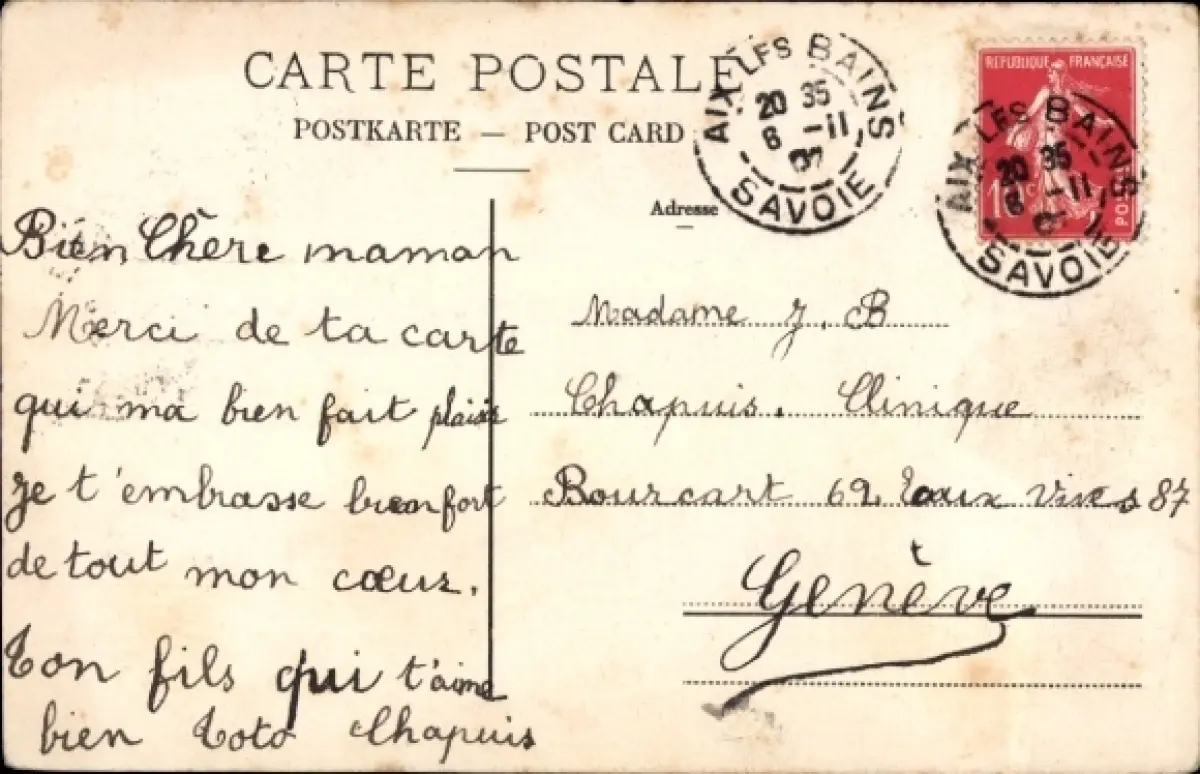 CARTE POSTALE
POSTKARTE — POST CARD
AIX LES BAINS
20 35
6 -11
07
SAVOIE
REPUBLIQUE FRANÇAISE
10c
POSTES
AIX LES BAINS
20 35
6 -11
SAVOIE
Adresse
Bien Chère maman
Merci de ta carte
qui ma bien fait plaisir
Je t'embrasse bien fort
de tout mon cœur.
Ton fils qui t'aime
bien Toto Chapuis
Madame J. B
Chapuis. Clinique
Bourcart 62 Eaux Vives 87
Genève